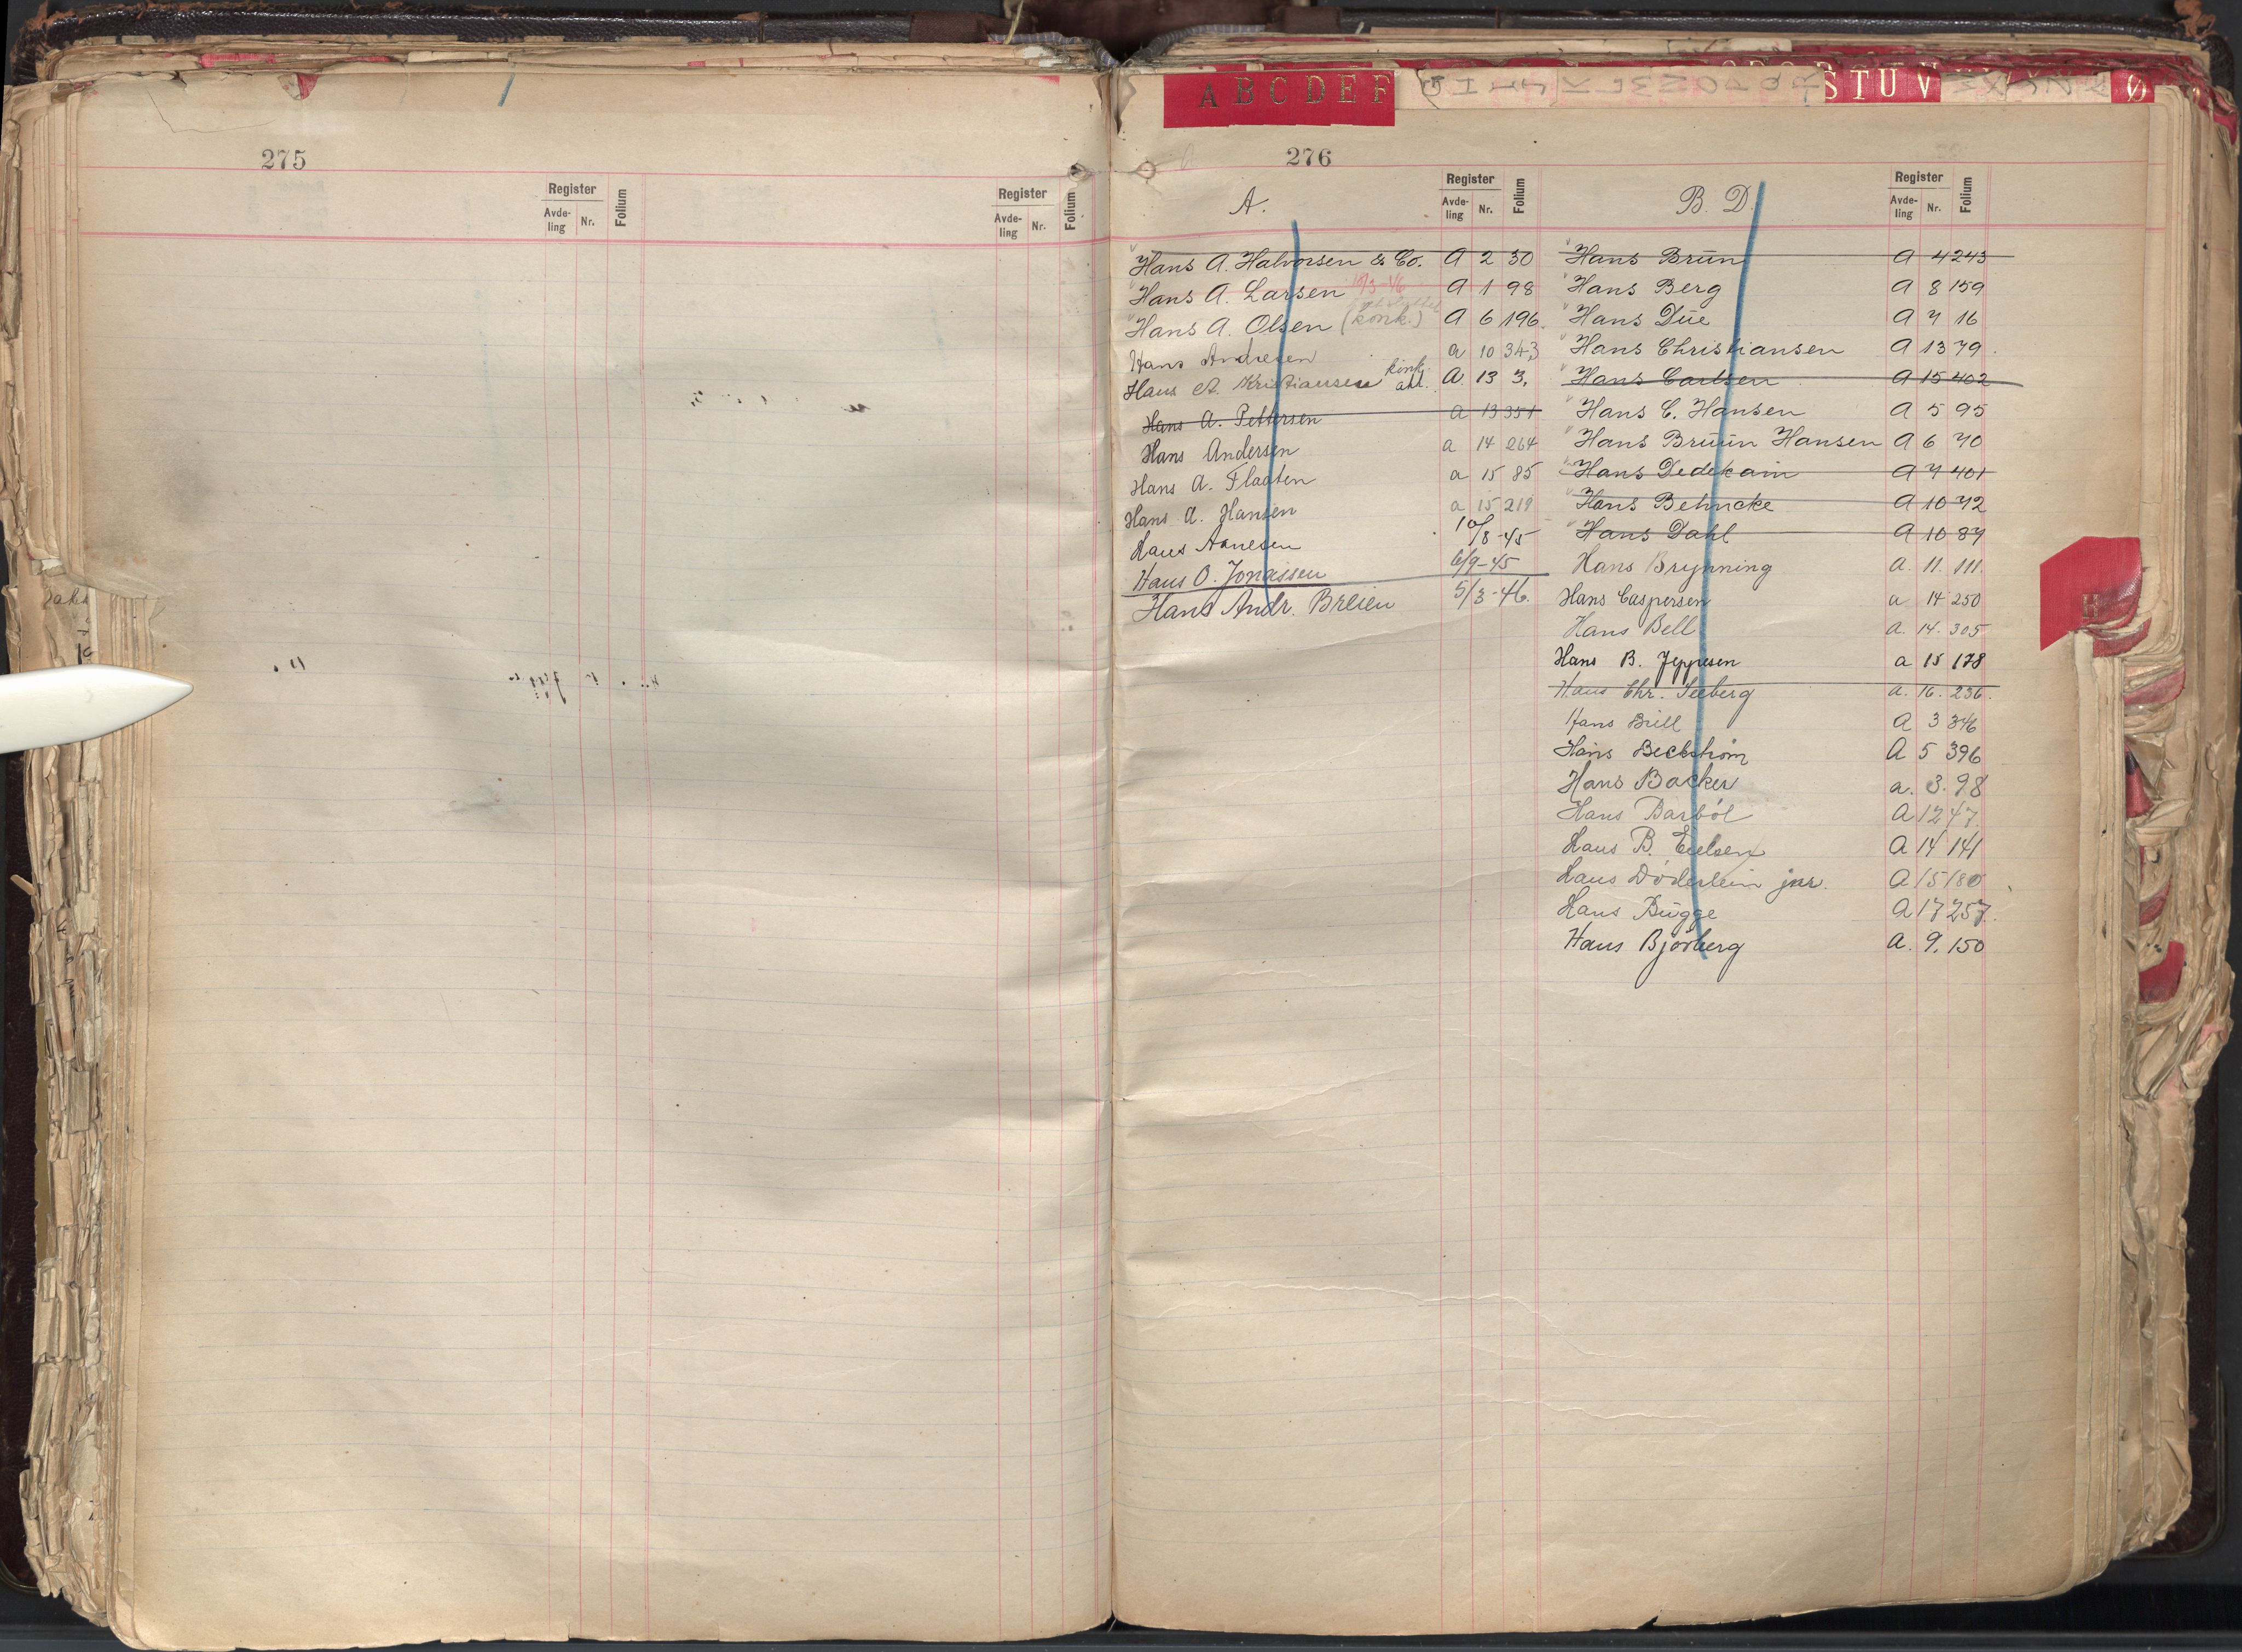 A B C D E F
S T U V
Ø
275
Register
Avde-
ling
Nr.
Folium
Register
Avde-
ling
Nr.
Folium
276
A.
Register
Avde-
ling
Nr.
Folium
Hans A. Halvorsen & Co. A 2 30
Hans A. Larsen A 1 98
Hans A. Olsen (konk.) A 6 196.
Hans Andresen a 10 343
Hans A. Kristiansen konk. A. 13 3.
Hans A. Pettersen a 13 351
Hans Andersen a 14 264
Hans A. Flaaten a 15 85
Hans A. Hansen a 15 219
Hans Aanesen 10/8-45
Hans O. Jonassen 6/9-45
Hans Andr. Breien 5/3-46.
B. D.
Register
Avde-
ling
Nr.
Folium
Hans Brun A 4 243
Hans Berg A 8 159
Hans Due A 7 16
Hans Christiansen A 13 79.
Hans Carlsen A 15 402
Hans C. Hansen A 5 95
Hans Bruun Hansen A 6 70
Hans Dedekam A 7 401
Hans Behncke A 10 72
Hans Dahl A 10 87
Hans Brynning A. 11. 111.
Hans Caspersen a 14 250
Hans Bell a. 14. 305
Hans B. Jeppesen a 15 178
Hans Chr. Seeberg a. 16. 236.
Hans Brill A 3 346
Hans Beckstrøm A 5 396
Hans Backer a. 3. 98
Hans Barból A 12 47.
Hans B. Eielsen A 14 141
Hans Döderlein jnr. A 15 180
Hans Bugge A 17 257.
Hans Bjørberg A. 9. 150
H